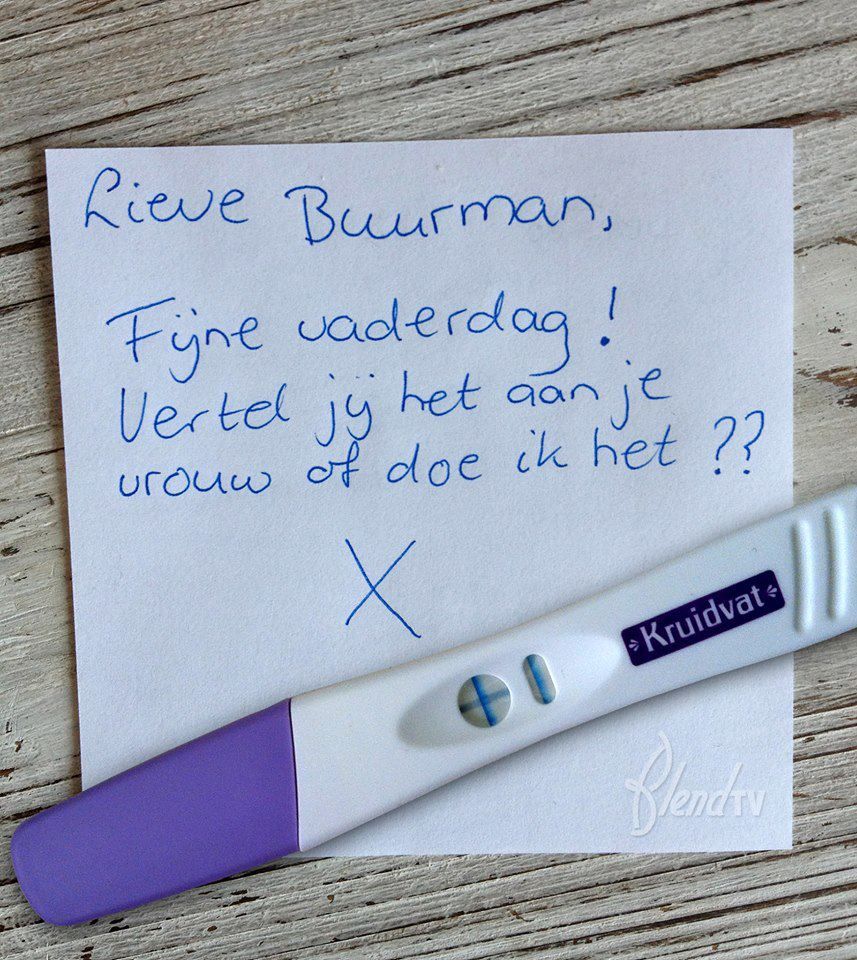 Lieve Buurman,
Fijne vaderdag!
Vertel jij het aan je
vrouw of doe ik het ??
X
Kruidvat
BlendTV